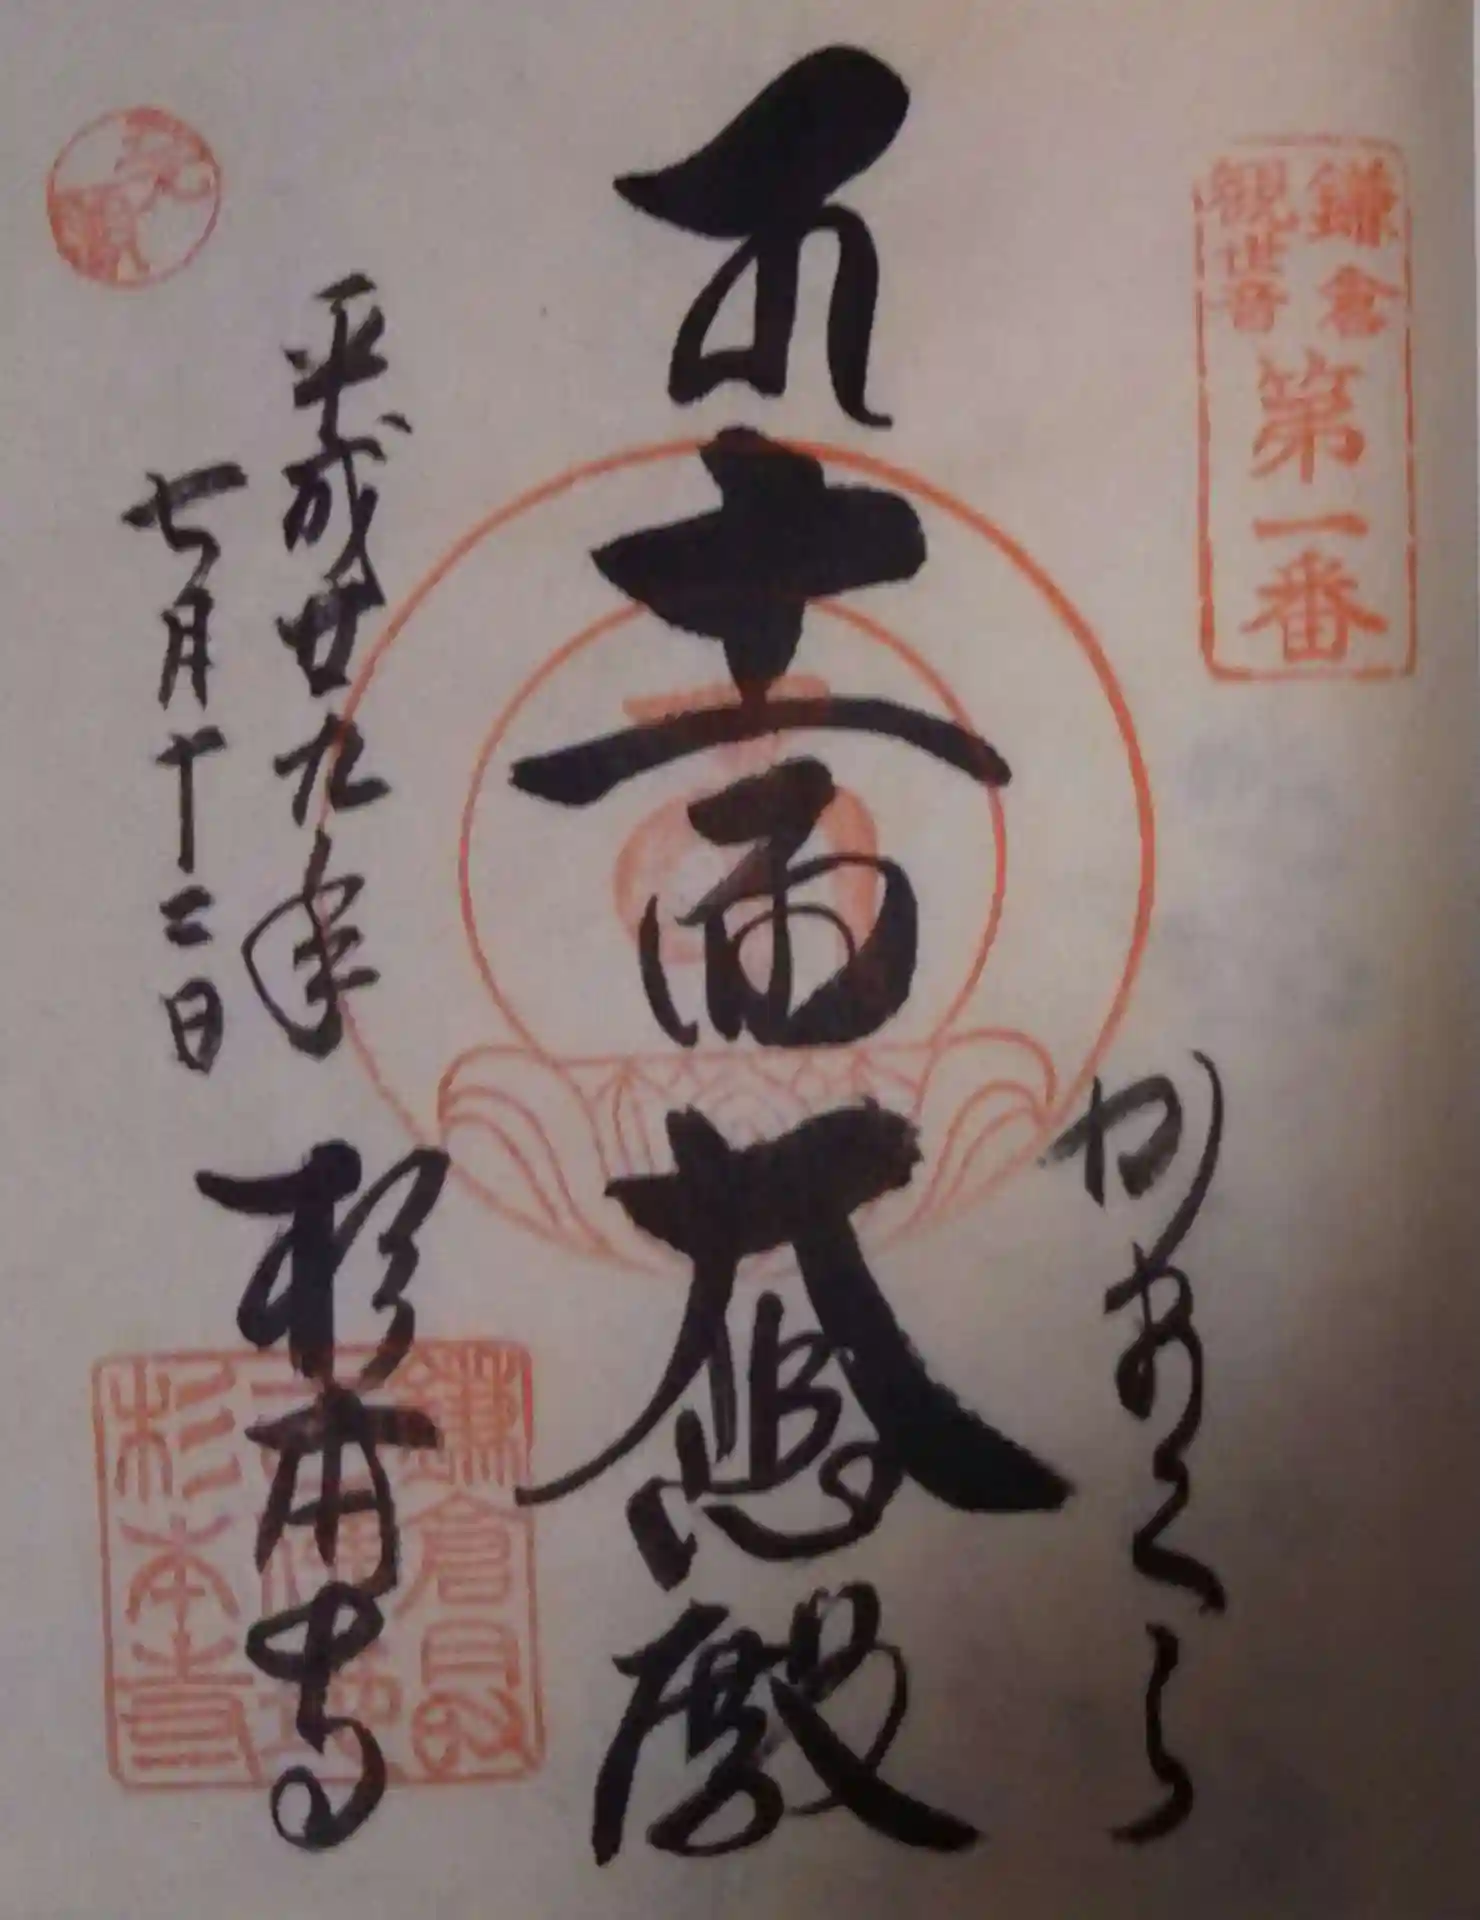 鎌倉
観世音
第一番
かまくら
十一面大悲殿
平成廿九年
七月十二日
杉本寺
杉本寺